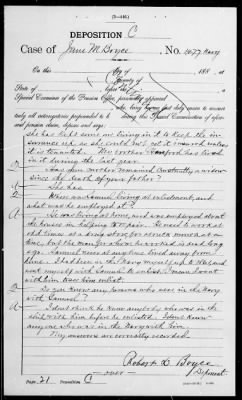 (3-446.)
DEPOSITION C
Case of Jane M. Boyce, No. 1677 Navy
On this day of 188 , at
County of
State of , before me,
Special Examiner of the Pension Office, personally appeared
who, being by me first duly sworn to answer
truly all interrogatories propounded to h during this Special Examination of afore-
said pension claim, deposes and says:
she has kept some one living in it to keep the in-
surance up as she could not get it insured unless
it is tenanted. My brother has lived
in it during the last year.
Q- Has your mother remained constantly a widow
since the death of your father?
A- She has.
Q- Where was Samuel living at enlistment, and
what was he employed at?
A- He was living at home, and was employed about
the house in helping to repair. He used to work at
odd times at a drug store for a month at a
time, but the man for whom he worked is dead long
ago. Samuel never at any time lived away from
home. I had been in the Navy myself, up to and
went myself with Samuel to enlist. I mean I went
with him to see him enlist.
Q- Do you know any persons who were in the Navy
with Samuel?
A- I don't think I know anybody who was on the
ship with him before he enlisted. I don't know
any one who was in the Navy with him.
My answers are correctly recorded.
Robert D. Boyce
Deponent.
Page 21 Deposition C